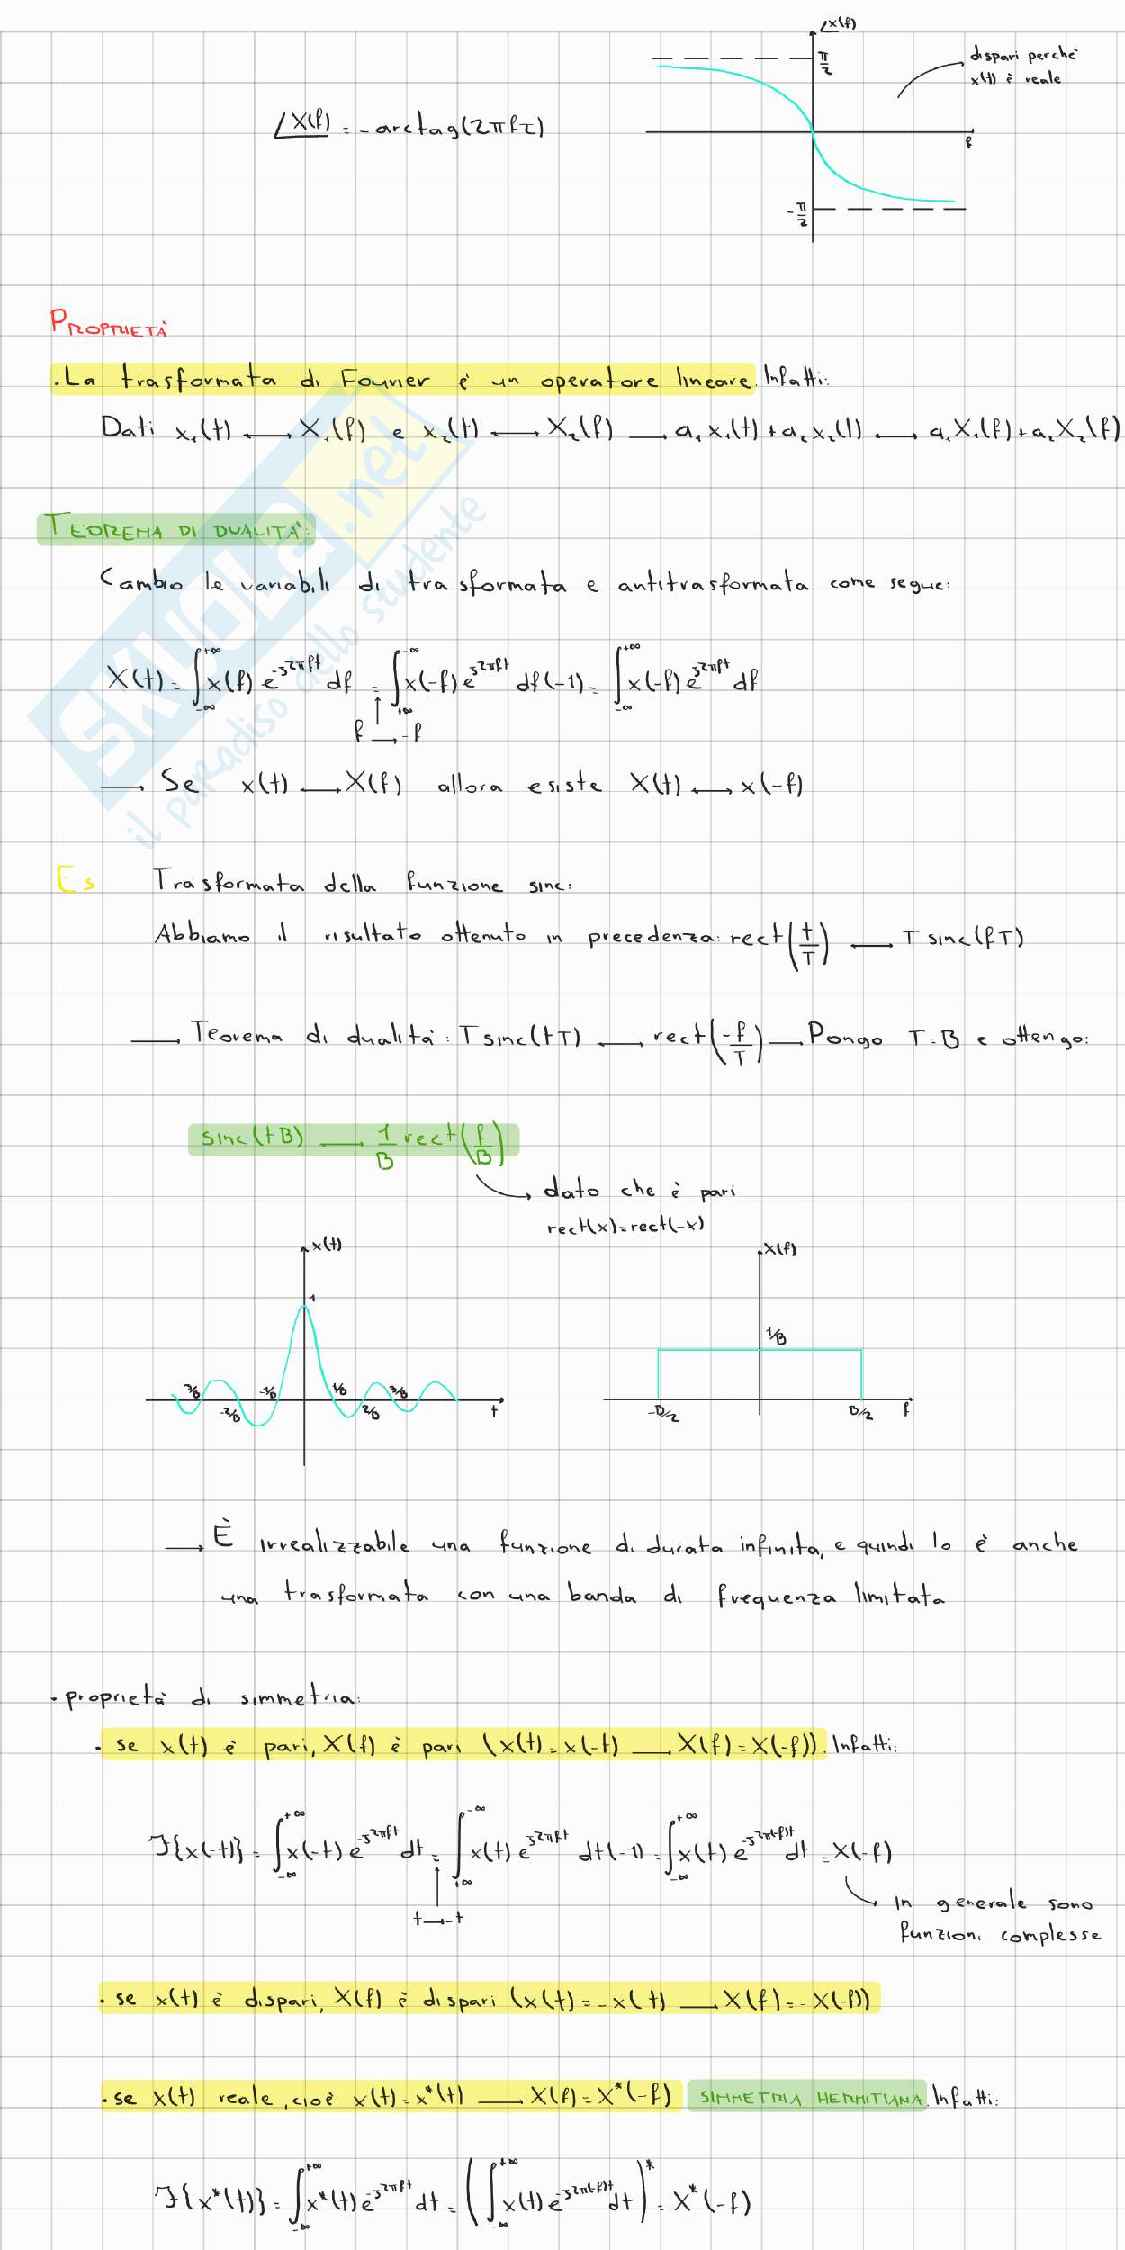 ∠X(f)
π/2
dispari perché
x(t) è reale
∠X(f) = -arctag(2πfτ)
f
-π/2
PROPRIETÀ
. La trasformata di Fourier è un operatore lineare. Infatti:
Dati x₁(t) ⟷ X₁(f) e x₂(t) ⟷ X₂(f) → a₁x₁(t)+a₂x₂(t) → a₁X₁(f)+a₂X₂(f)
TEOREMA DI DUALITÀ:
Cambio le variabili di trasformata e antitrasformata come segue:
X(t) = ∫_{-∞}^{+∞} x(f) e^{-j2πft} df = ∫_{+∞}^{-∞} x(-f) e^{j2πft} df(-1) = ∫_{-∞}^{+∞} x(-f) e^{j2πft} df
f → -f
→ Se x(t) ⟷ X(f) allora esiste X(t) ⟷ x(-f)
Es Trasformata della funzione sinc:
Abbiamo il risultato ottenuto in precedenza: rect(t/T) ⟷ T sinc(fT)
→ Teorema di dualità: T sinc(tT) ⟷ rect(-f/T) → Pongo T=B e ottengo:
sinc(tB) → 1/B rect(f/B)
dato che è pari
rect(x)=rect(-x)
x(t)
X(f)
1
1/B
-3/B
-2/B
-1/B
1/B
2/B
3/B
t
-B/2
B/2
f
→ È irrealizzabile una funzione di durata infinita, e quindi lo è anche
una trasformata con una banda di frequenza limitata
• proprietà di simmetria:
- se x(t) è pari, X(f) è pari (x(t)=x(-t) → X(f)=X(-f)). Infatti:
ℱ{x(-t)} = ∫_{-∞}^{+∞} x(-t) e^{-j2πft} dt = ∫_{+∞}^{-∞} x(t) e^{j2πft} dt(-1) = ∫_{-∞}^{+∞} x(t) e^{-j2π(-f)t} dt = X(-f)
t → -t
In generale sono
funzioni complesse
. se x(t) è dispari, X(f) è dispari (x(t)=-x(t) → X(f)=-X(-f))
. se x(t) reale, cioè x(t)=x*(t) → X(f)=X*(-f) SIMMETRIA HERMITIANA. Infatti:
ℱ{x*(t)} = ∫_{-∞}^{+∞} x*(t) e^{-j2πft} dt = (∫_{-∞}^{+∞} x(t) e^{-j2π(-f)t} dt)* = X*(-f)
SKUOLA.net
il paradiso dello studente